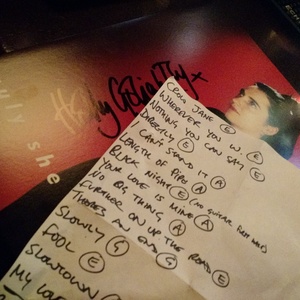 she
Holly Golightly +
JANE E
WHEREVER YOU W. E
NOTHING YOU CAN SAY E
DIRECTLY E
I CAN'T STAND IT A
LENGTH OF PIPE A
BLACK NIGHT E (NO GUITAR
YOUR LOVE IS MINE A
NO BIG THING A
FURTHER ON UP THE ROAD E
THERES AN END G
SLOWLY G
FOOL E
SLOWTOWN
MY